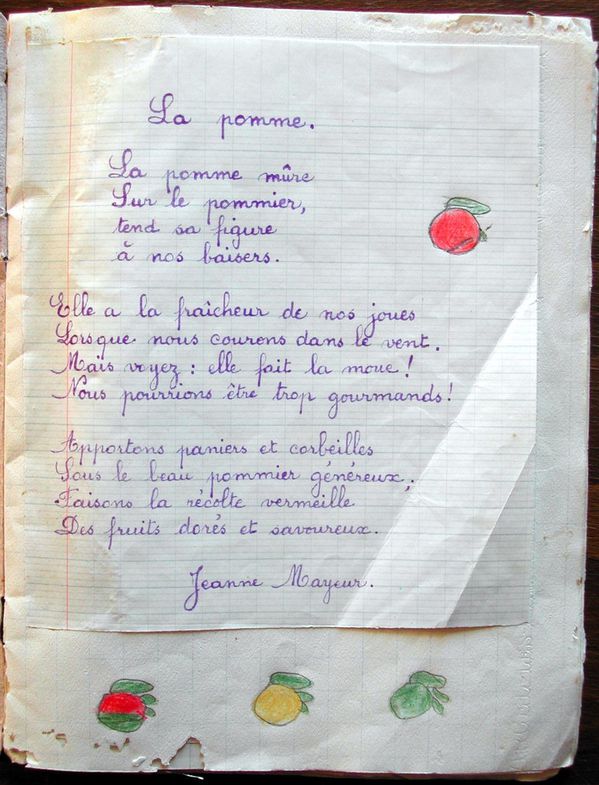 La pomme.
La pomme mûre
Sur le pommier,
tend sa figure
à nos baisers.
Elle a la fraîcheur de nos joues
Lorsque nous courons dans le vent.
Mais voyez : elle fait la moue !
Nous pourrions être trop gourmands !
Apportons paniers et corbeilles
Sous le beau pommier généreux,
Faisons la récolte vermeille
Des fruits dorés et savoureux.
Jeanne Mayeur.